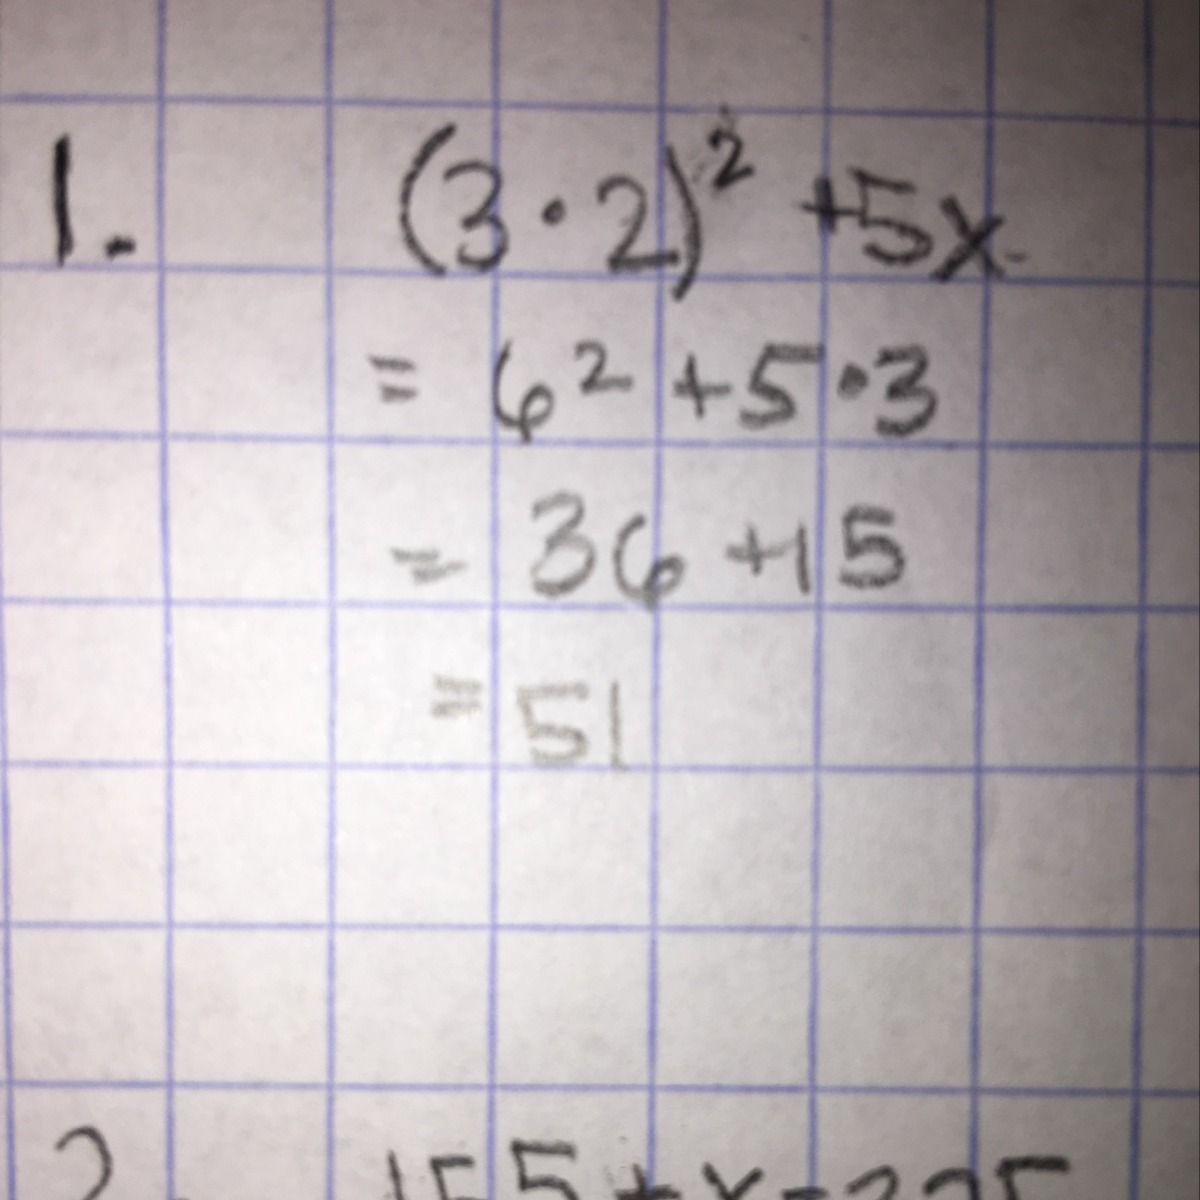 1. (3·2)² +5x
= 6² +5·3
= 36 +15
= 51